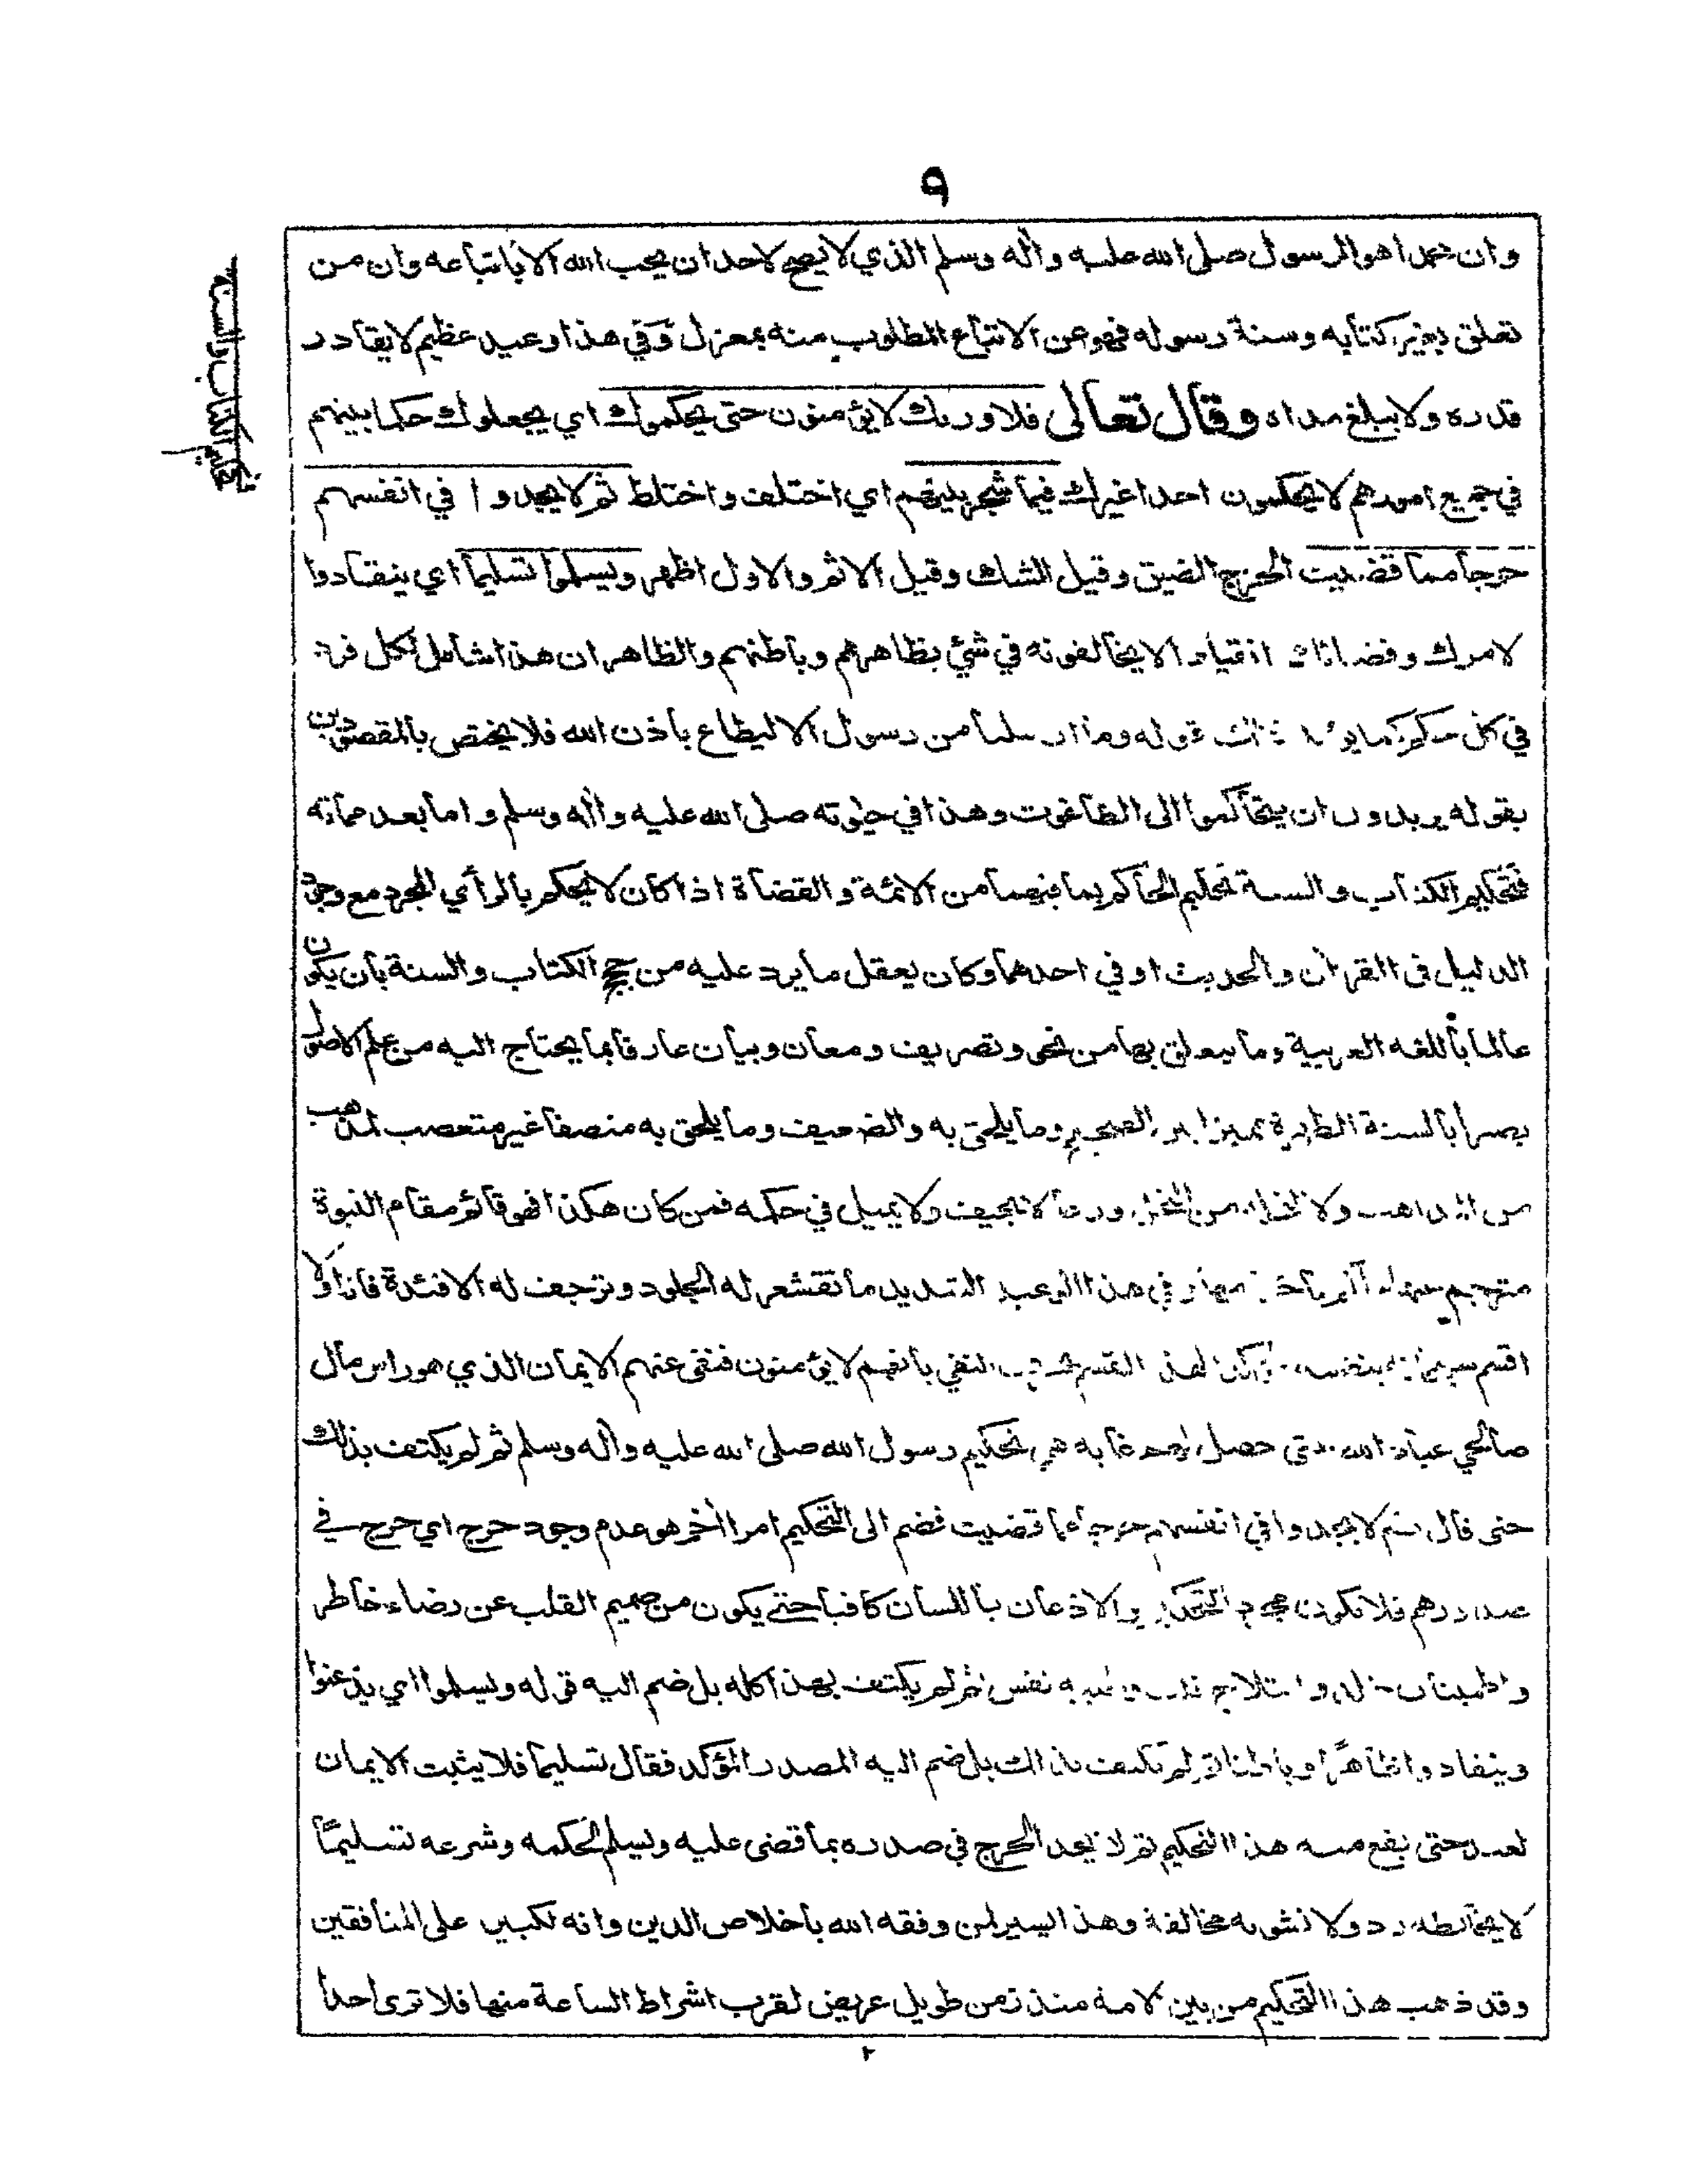 ٩
وان محمدا هو الرسول صلى الله عليه وأله وسلم الذي لا يصح لاحد ان يحب الله الا باتباعه وان من
تعلق بغير كتابه وسنة رسوله فهو عن الاتباع المطلوب منه بمعزل وفي هذا وعيد عظيم لا يقادر
قدره ولا يبلغ مداه وقال تعالى فلا وربك لا يؤمنون حتى يحكموك اي يجعلوك حكما بينهم
في جميع امورهم لا يحكمون احدا غيرك فيما شجر بينهم اي اختلف واختلط ثم لا يجدوا في انفسهم
حرجا مما قضيت الحرج الضيق وقيل الشك وقيل الاثم والاول اظهر ويسلموا تسليما اي ينقادوا
لامرك وقضائك انقيادا لا يخالفونه في شيء بظاهرهم وباطنهم والظاهر ان هذا شامل لكل فرد
في كل حكم كما يؤيد ذلك قوله وما ارسلنا من رسول الا ليطاع باذن الله فلا يختص بالمقصودين
بقوله يريدون ان يتحاكموا الى الطاغوت وهذا في حيوته صلى الله عليه وأله وسلم واما بعد مماته
فتحكيم الكتاب والسنة تحكيم الحاكم بما فيهما من الائمة والقضاة اذا كان لا يحكم بالرأي المجرد مع وجود
الدليل في القرأن والحديث او في احدهما وكان يعقل ما يرد عليه من حجج الكتاب والسنة بأن يكون
عالما باللغة العربية وما يتعلق بها من نحو وتصريف ومعان وبيان عارفا بما يحتاج اليه من علم الاصول
بصيرا بالسنة المطهرة مميزا بين الصحيح وما يلحق به والضعيف وما يلحق به منصفا غير متعصب لمذهب
من المذاهب ولا لنحلة من النحل ورعا لا يحيف ولا يميل في حكمه فمن كان هكذا فهو قائم مقام النبوة
مترجم عنها في هذا الوعيد الشديد ما تقشعر له الجلود وترجف له الافئدة فانه اولا
اقسم سبحانه بنفسه لهذا القسم بحرف النفي بانهم لا يؤمنون فنفى عنهم الايمان الذي هو راس مال
صالحي عباد الله حتى تحصل لهم غاية هي تحكيم رسول الله صلى الله عليه وأله وسلم ثم لم يكتف بذلك
حتى قال ثم لا يجدوا في انفسهم حرجا مما قضيت فضم الى التحكيم امرا أخر هو عدم وجود حرج اي حرج في
صدورهم فلا يكون مجرد التحكيم والاذعان باللسان كافيا حتى يكون من صميم القلب عن رضاء خاطر
واطمينان نفس ثم لم يكتف بهذا كله بل ضم اليه قوله ويسلموا اي يذعنوا
وينقادوا ظاهرًا وباطنا ثم لم يكتف بذلك بل ضم اليه المصدر المؤكد فقال تسليما فلا يثبت الايمان
لعبد حتى يقع منه هذا التحكيم ثم لا يجد الحرج في صدره بما قضى عليه ويسلم لحكمه وشرعه تسليمًا
لا يخالطه رد ولا تشوبه مخالفة وهذا يسير لمن وفقه الله باخلاص الدين وانه لكبير على المنافقين
وقد ذهب هذا التحكيم من بين الامة منذ زمن طويل عريض لقرب اشراط الساعة منها فلا ترى احدا
٢
تحكيم الكتاب والسنة